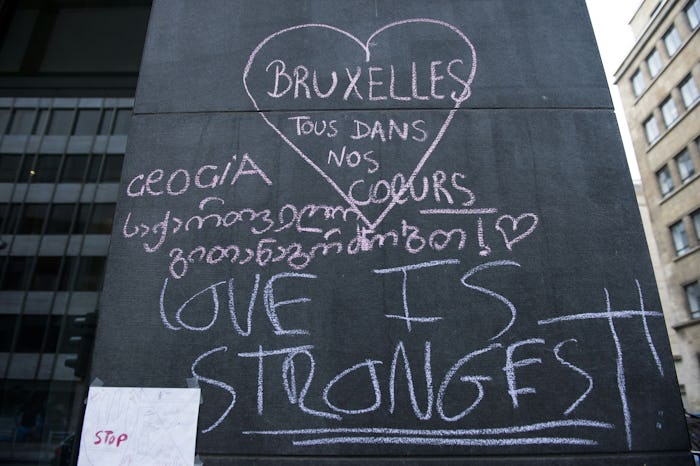 BRUXELLES
TOUS DANS
NOS
COEURS
GEOGIA
საქართველო
გითანაგრძობთ! ♡
LOVE IS
STRONGEST
STOP